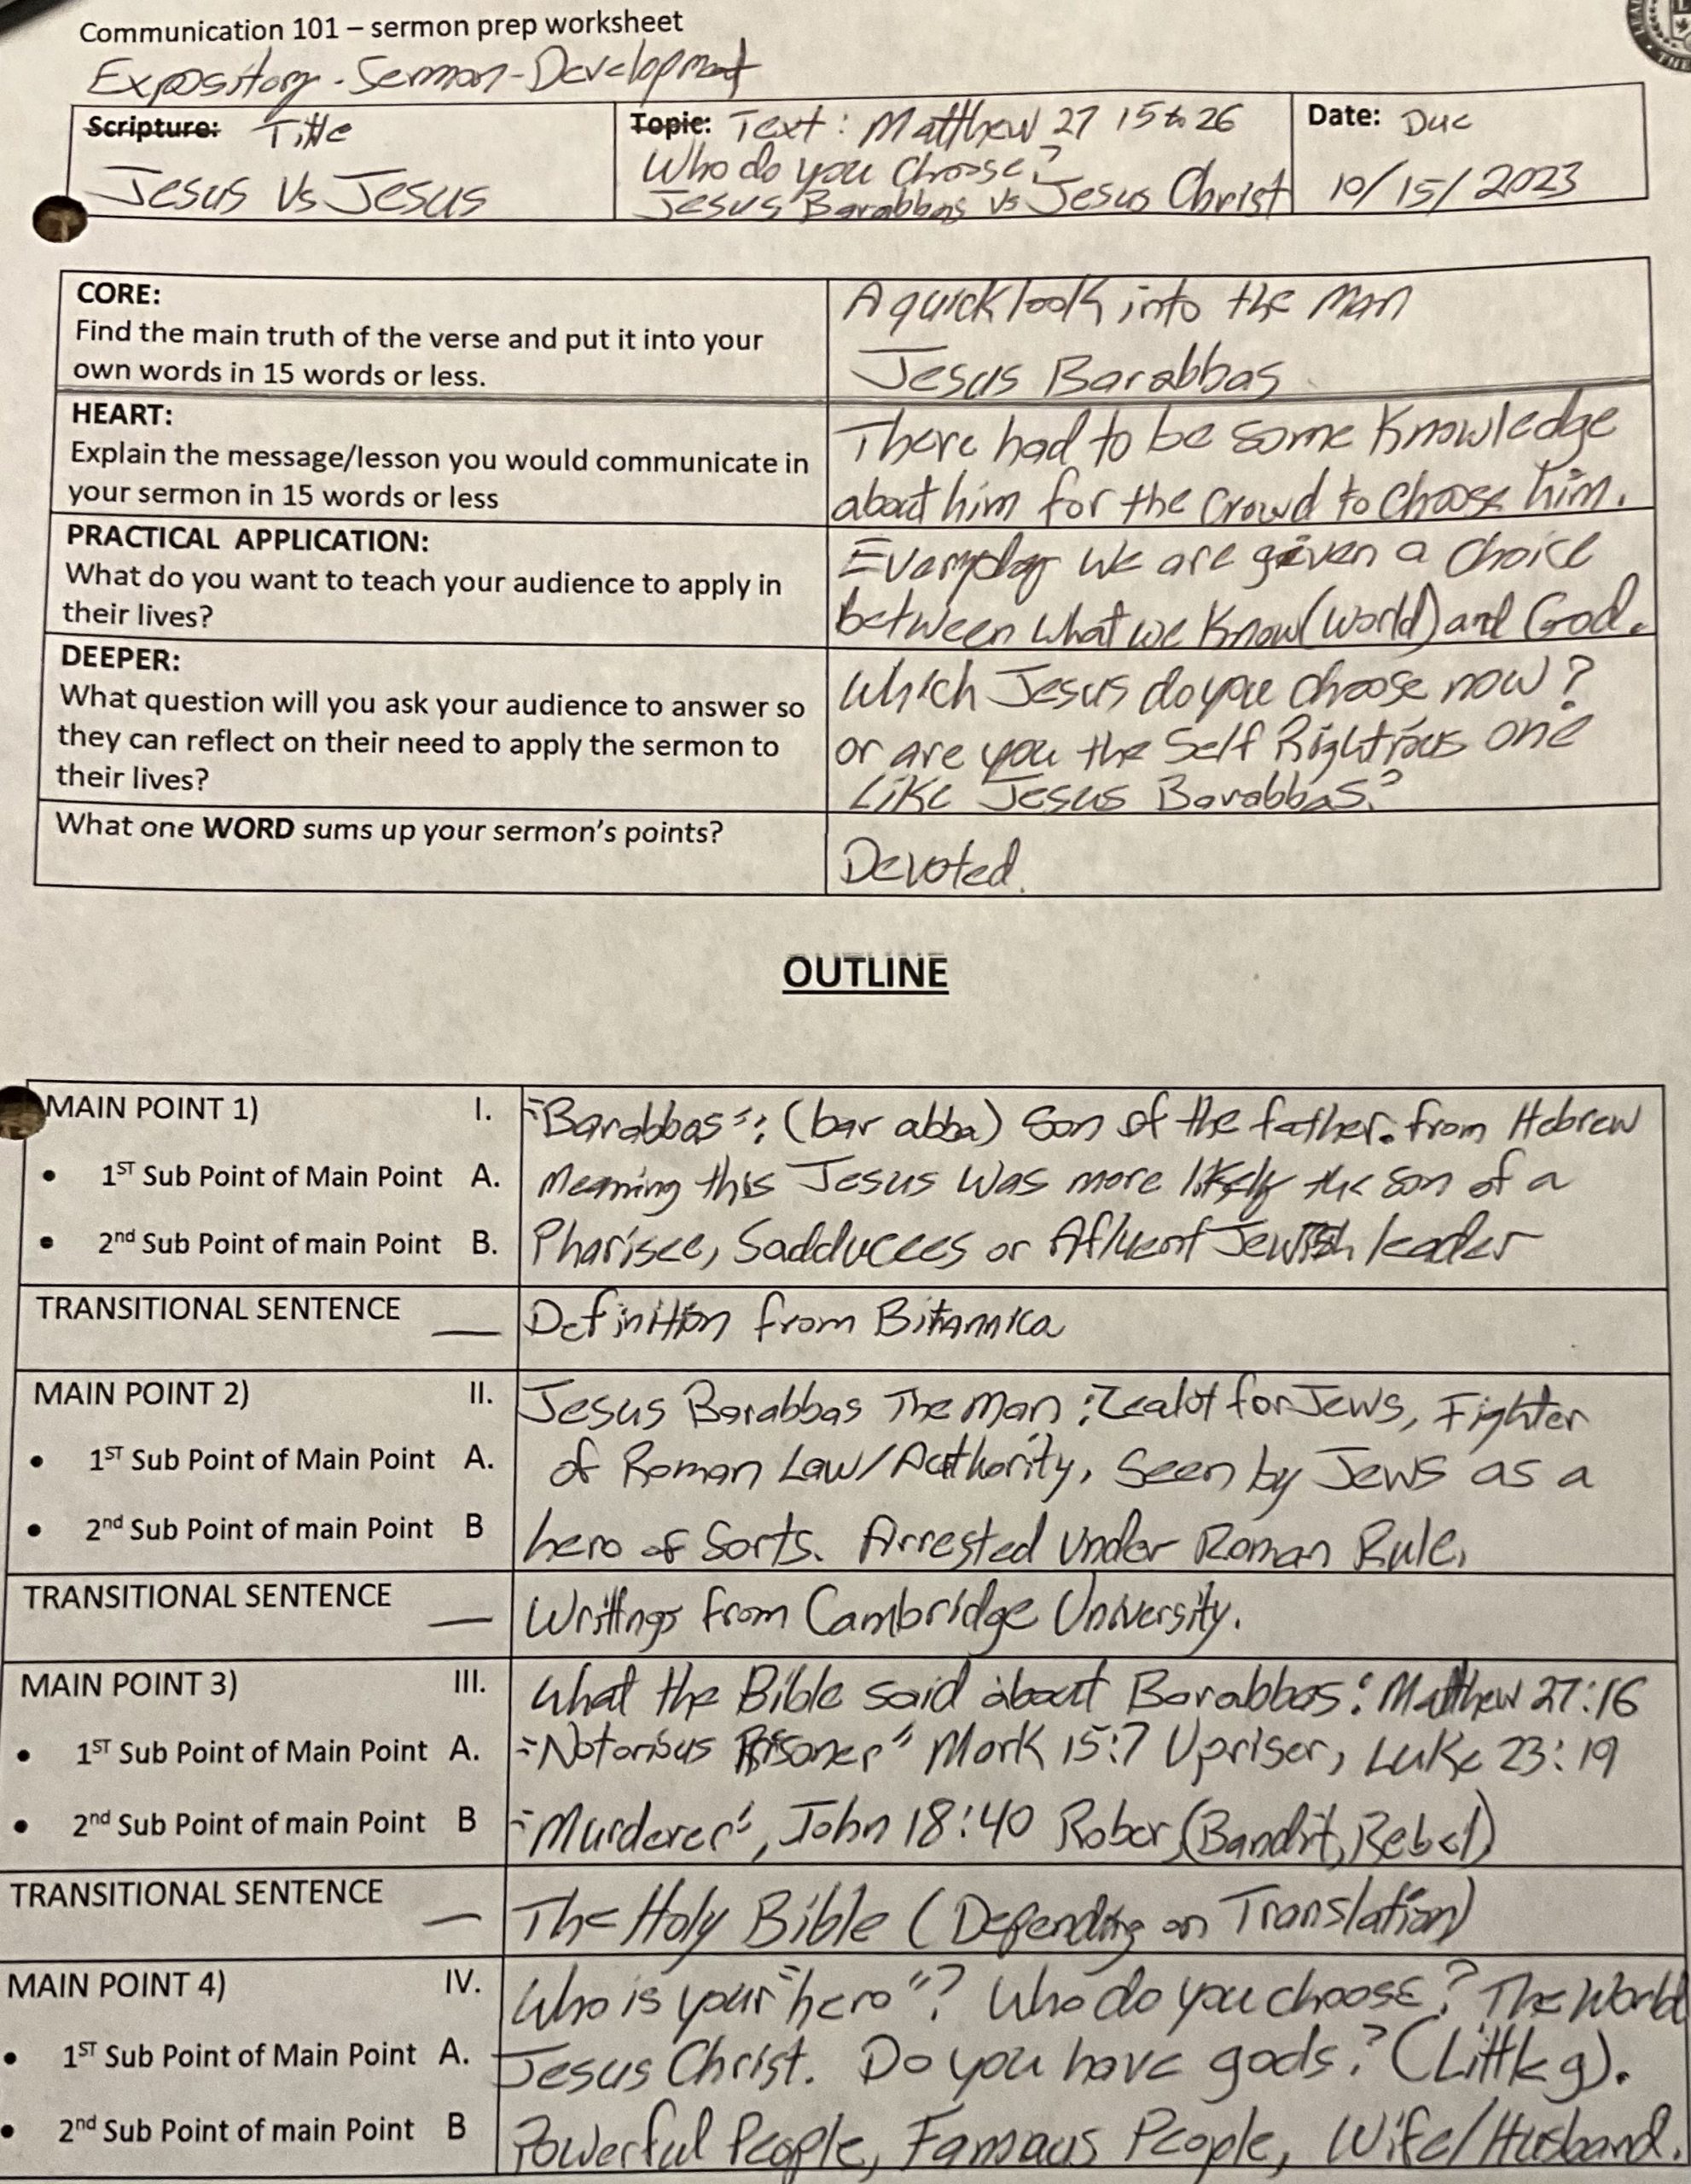 Communication 101 – sermon prep worksheet
Expository - Sermon - Development
Scripture: Title
Jesus Vs Jesus
Topic: Text: Matthew 27 15 to 26
Who do you choose?
Jesus Barabbas vs Jesus Christ
Date: Due
10/15/2023
CORE:
Find the main truth of the verse and put it into your
own words in 15 words or less.
A quick look into the man
Jesus Barabbas
HEART:
Explain the message/lesson you would communicate in
your sermon in 15 words or less
There had to be some Knowledge
about him for the Crowd to choose him.
PRACTICAL APPLICATION:
What do you want to teach your audience to apply in
their lives?
Everyday we are given a choice
between what we Know (World) and God.
DEEPER:
What question will you ask your audience to answer so
they can reflect on their need to apply the sermon to
their lives?
Which Jesus do you choose now?
or are you the Self Rightious one
Like Jesus Barabbas?
What one WORD sums up your sermon's points?
Devoted.
OUTLINE
MAIN POINT 1) I. "Barabbas": (bar abba) Son of the father. from Hebrew
• 1ST Sub Point of Main Point A. Meaning this Jesus was more likely the son of a
• 2nd Sub Point of main Point B. Pharisee, Sadducees or Afluent Jewish leader
TRANSITIONAL SENTENCE — Definition from Bitannica
MAIN POINT 2) II. Jesus Barabbas The Man: Zealot for Jews, Fighter
• 1ST Sub Point of Main Point A. of Roman Law/Authority, Seen by Jews as a
• 2nd Sub Point of main Point B hero of Sorts. Arrested Under Roman Rule.
TRANSITIONAL SENTENCE — Writings from Cambridge University.
MAIN POINT 3) III. What the Bible said about Barabbas: Matthew 27:16
• 1ST Sub Point of Main Point A. "Notorious Prisoner" Mark 15:7 Upriser, Luke 23:19
• 2nd Sub Point of main Point B "Murderer", John 18:40 Rober, (Bandit, Rebel)
TRANSITIONAL SENTENCE — The Holy Bible (Depending on Translation)
MAIN POINT 4) IV. Who is your "hero"? Who do you choose? The World
• 1ST Sub Point of Main Point A. Jesus Christ. Do you have gods? (Little g).
• 2nd Sub Point of main Point B Powerful People, Famous People, Wife/Husband.